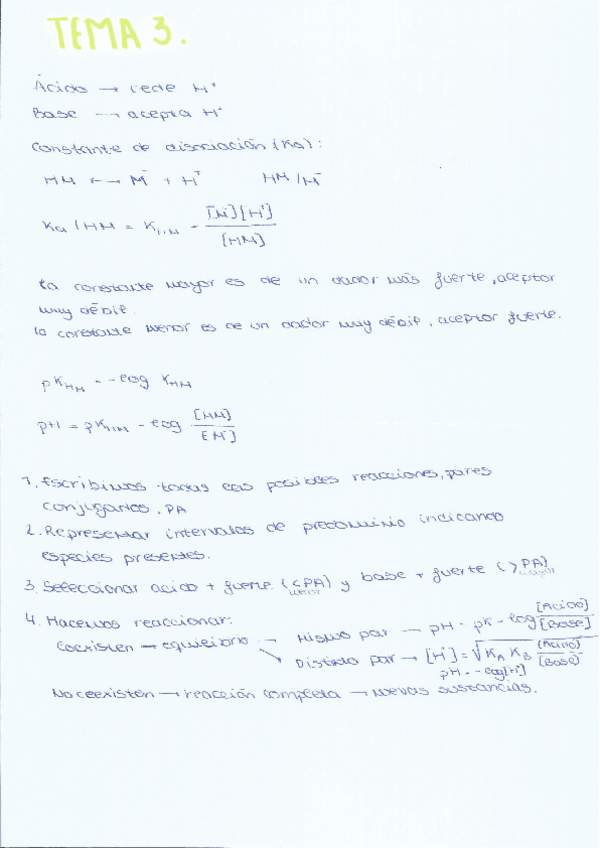 TEMA 3.
Ácido → cede H⁺
Base → acepta H⁺
Constante de disociación (Ka):
HM ←→ M⁻ + H⁺ HM/M⁻
Ka / HM = K_HM = [M⁻][H⁺] / [HM]
La constante mayor es de un dador más fuerte, aceptor
muy débil.
La constante menor es de un dador muy débil, aceptor fuerte.
pK_HM = -log K_HM
pH = pK_HM - log [HM] / [M⁻]
1. Escribimos todas las posibles reacciones, pares
conjugados, PA
2. Representar intervalos de predominio indicando
especies presentes.
3. Seleccionar acido + fuerte (<PA) y base + fuerte (>PA)
menor mayor
4. Hacemos reaccionar:
Coexisten → equilibrio → Mismo par → pH = pK - log [Acido] / [Base]
→ Distinto par → [H⁺] = √(K_A K_B [Acido] / [Base])
pH = -log[H⁺]
No coexisten → reacción completa → nuevas sustancias.